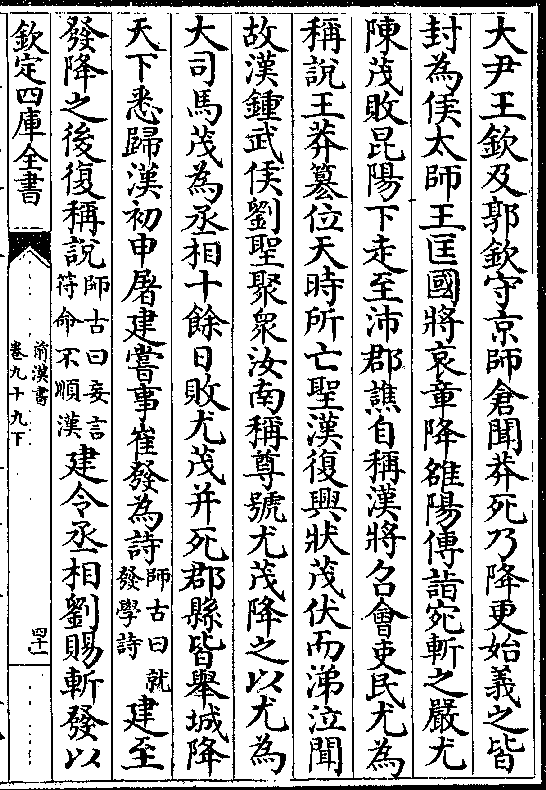 大尹王欽及郭欽守京師倉聞莽死乃降更始義之皆
封為侯太師王匡國將哀章降雒陽傳詣宛斬之嚴尤
陳茂敗昆陽下走至沛郡譙自稱漢將召會吏民尤為
稱說王莽簒位天時所亡聖漢復興狀茂伏而涕泣聞
故漢鍾武侯劉聖聚衆汝南稱尊號尤茂降之以尤為
大司馬茂為丞相十餘日敗尤茂并死郡縣皆舉城降
天下悉歸漢初申屠建嘗事崔發為詩師古曰就發學詩建至
發降之後復稱說師古曰妄言符命不順漢建令丞相劉賜斬發以
欽定四庫全書
前漢書
卷九十九下
四十一